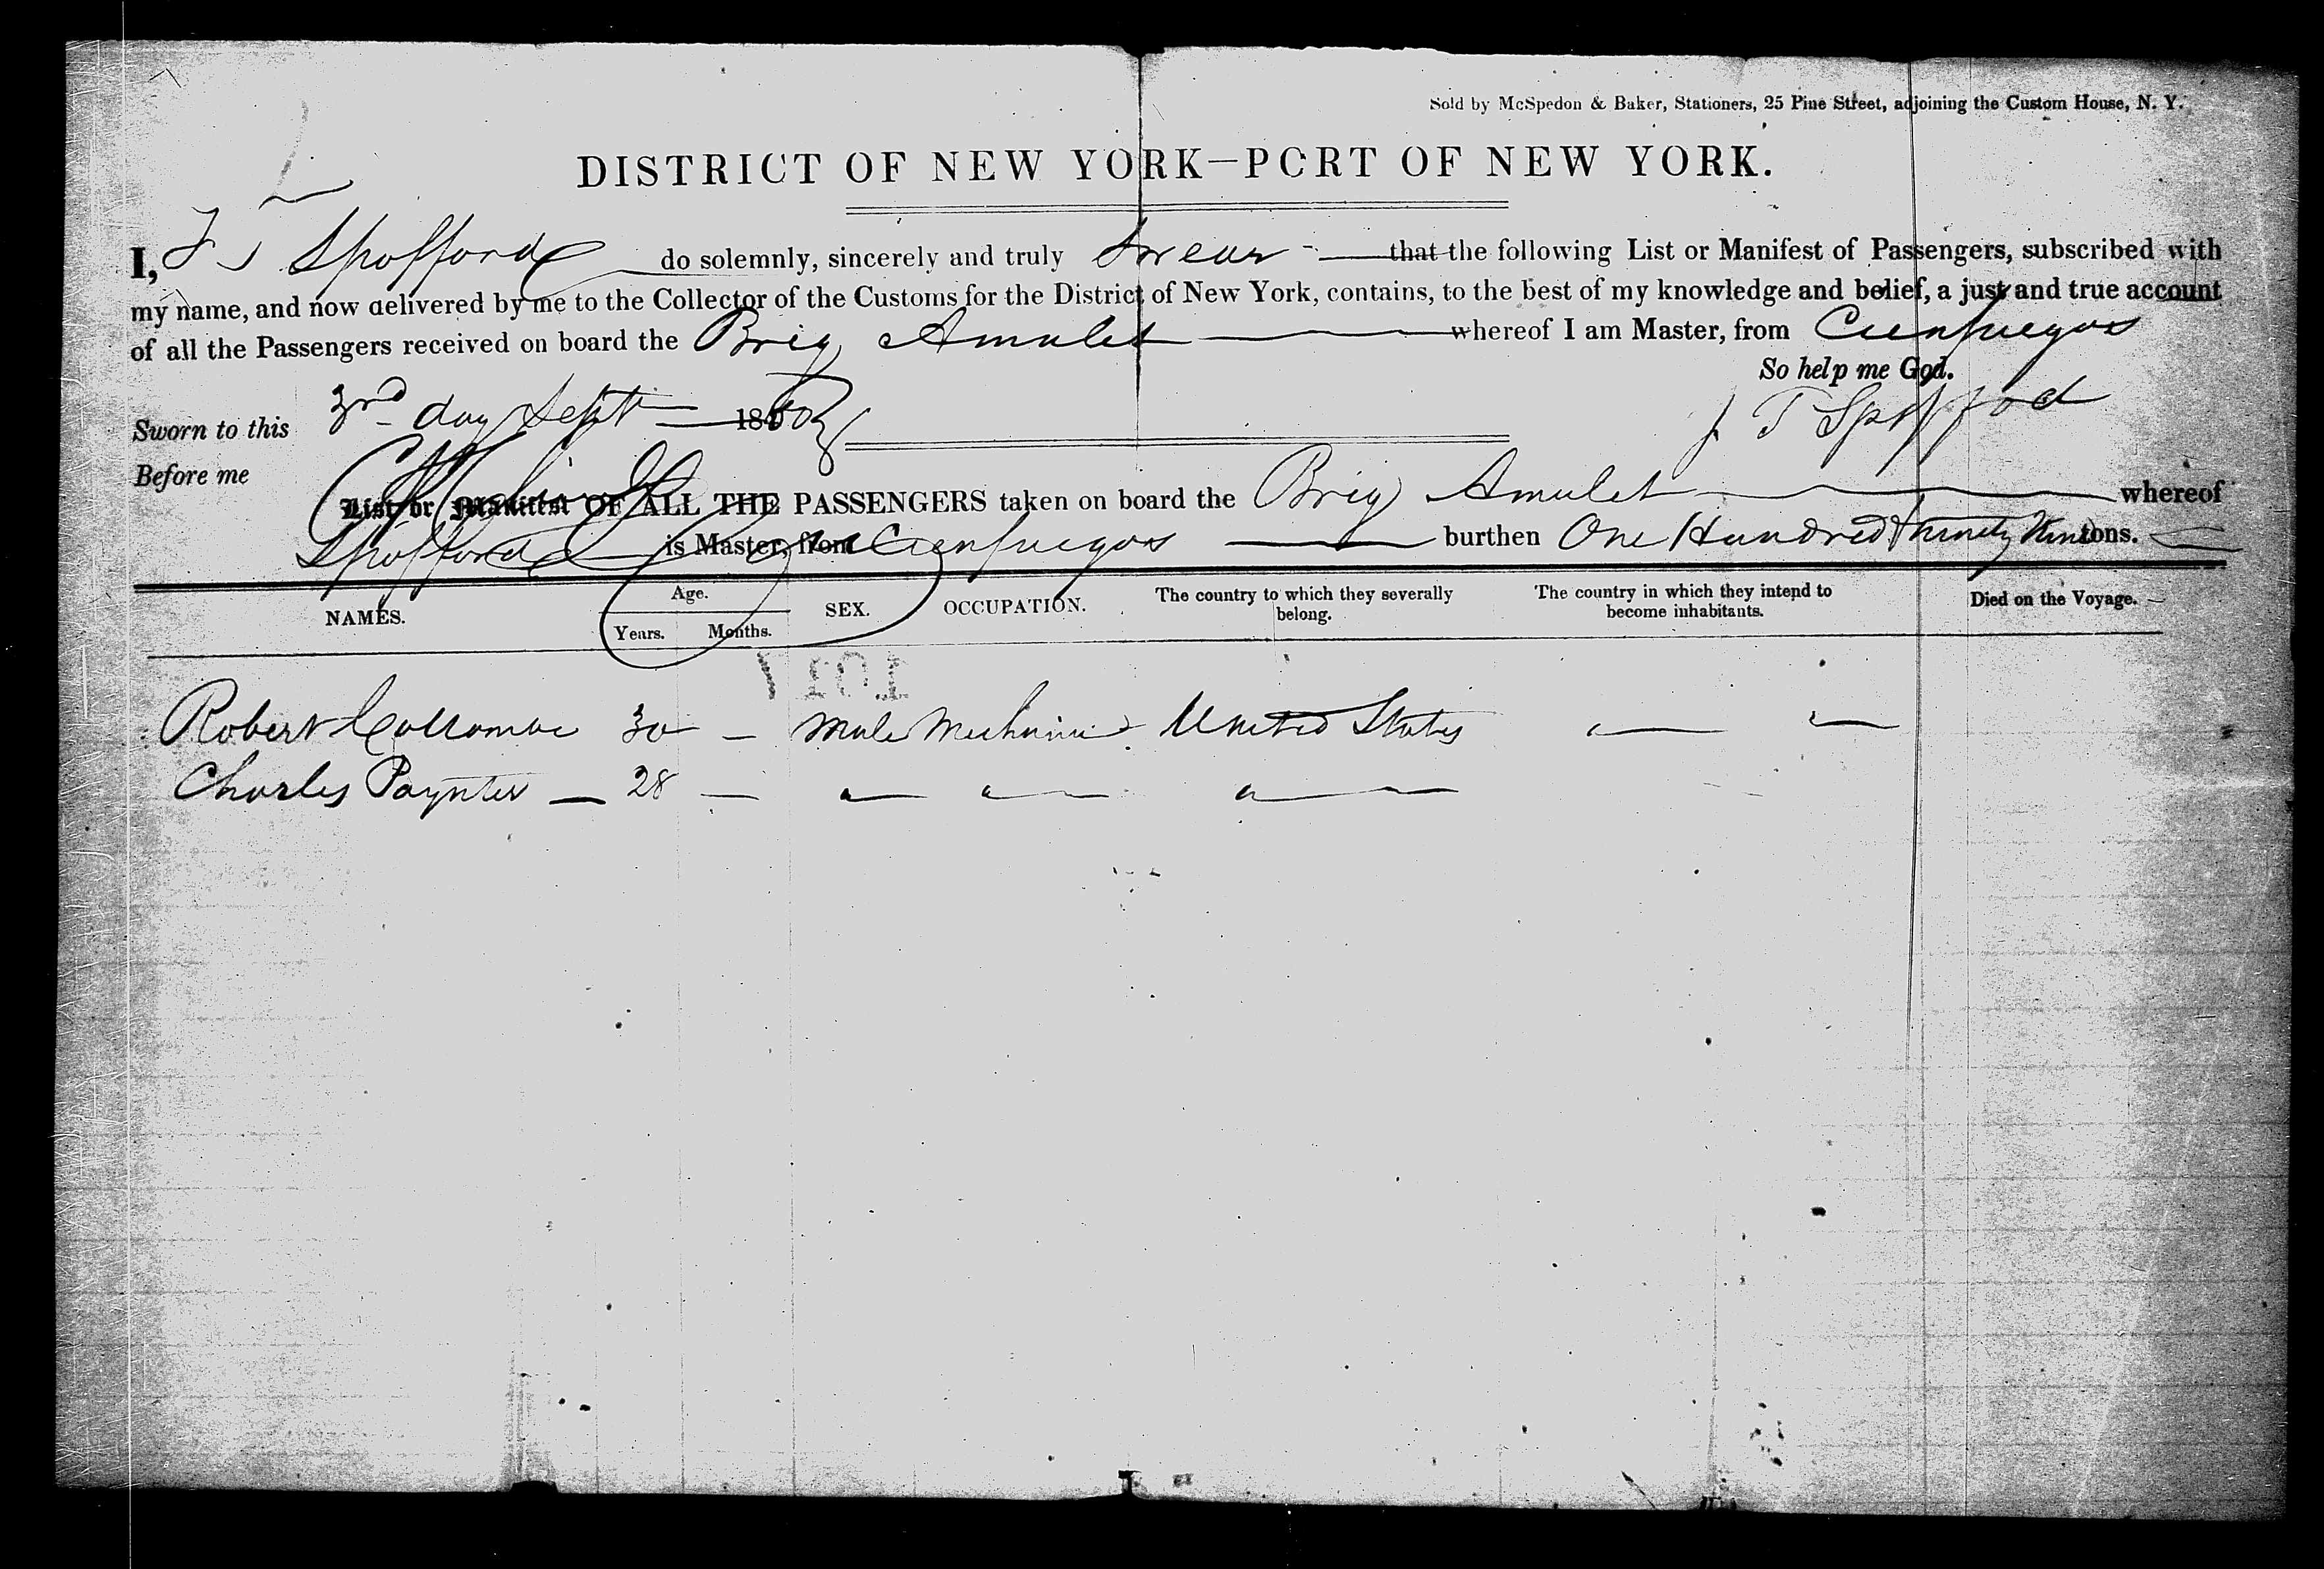 Sold by McSpedon & Baker, Stationers, 25 Pine Street, adjoining the Custom House, N. Y.
DISTRICT OF NEW YORK—PORT OF NEW YORK.
I, J T Spofford do solemnly, sincerely and truly Swear that the following List or Manifest of Passengers, subscribed with
my name, and now delivered by me to the Collector of the Customs for the District of New York, contains, to the best of my knowledge and belief, a just and true account
of all the Passengers received on board the Brig Amulet whereof I am Master, from Cienfuegos
So help me God.
Sworn to this 3rd day Sept 18
J T Spofford
Before me
List or Manifest OF ALL THE PASSENGERS taken on board the Brig Amulet whereof
Spofford is Master, from Cienfuegos burthen One Hundred & ninety Nine tons.
NAMES. Age. Years. Months. SEX. OCCUPATION. The country to which they severally belong. The country in which they intend to become inhabitants. Died on the Voyage.
Robert 30 — Male Mechanic United States
Charles Paynter — 28 —